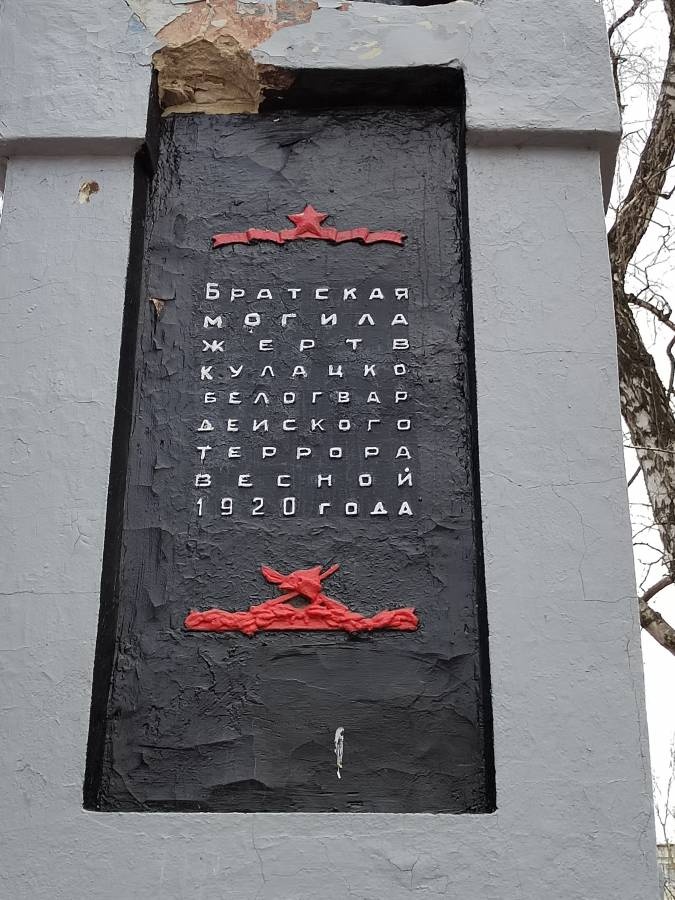 Братская
могила
жертв
кулацко
белогвар
дейского
террора
весной
1920 года